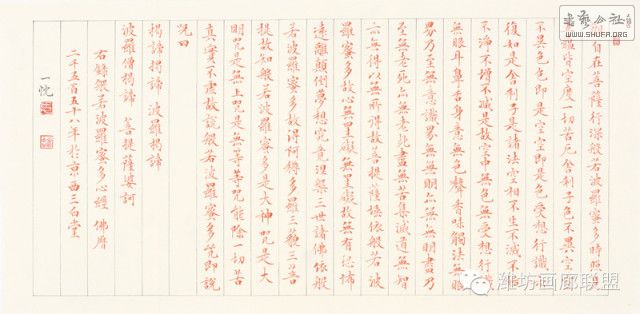 觀自在菩薩行深般若波羅蜜多時照見
蘊皆空度一切苦厄舍利子色不異空
不異色色即是空空即是色受想行識亦
復如是舍利子是諸法空相不生不滅不垢
不淨不增不減是故空中無色無受想行識
無眼耳鼻舌身意無色聲香味觸法無眼
界乃至無意識界無無明亦無無明盡乃
至無老死亦無老死盡無苦集滅道無智
亦無得以無所得故菩提薩埵依般若波
羅蜜多故心無罣礙無罣礙故無有恐怖
遠離顛倒夢想究竟涅槃三世諸佛依般
若波羅蜜多故得阿耨多羅三藐三菩
提故知般若波羅蜜多是大神咒是大
明咒是無上咒是無等等咒能除一切苦
真實不虛故說般若波羅蜜多咒即說
咒曰
揭諦揭諦 波羅揭諦
波羅僧揭諦 菩提薩婆訶
右錄般若波羅蜜多心經 佛曆
二千五百五十八年於京西三白堂
一忱
书艺公社
WWW.SHUFA.ORG
潍坊画廊联盟